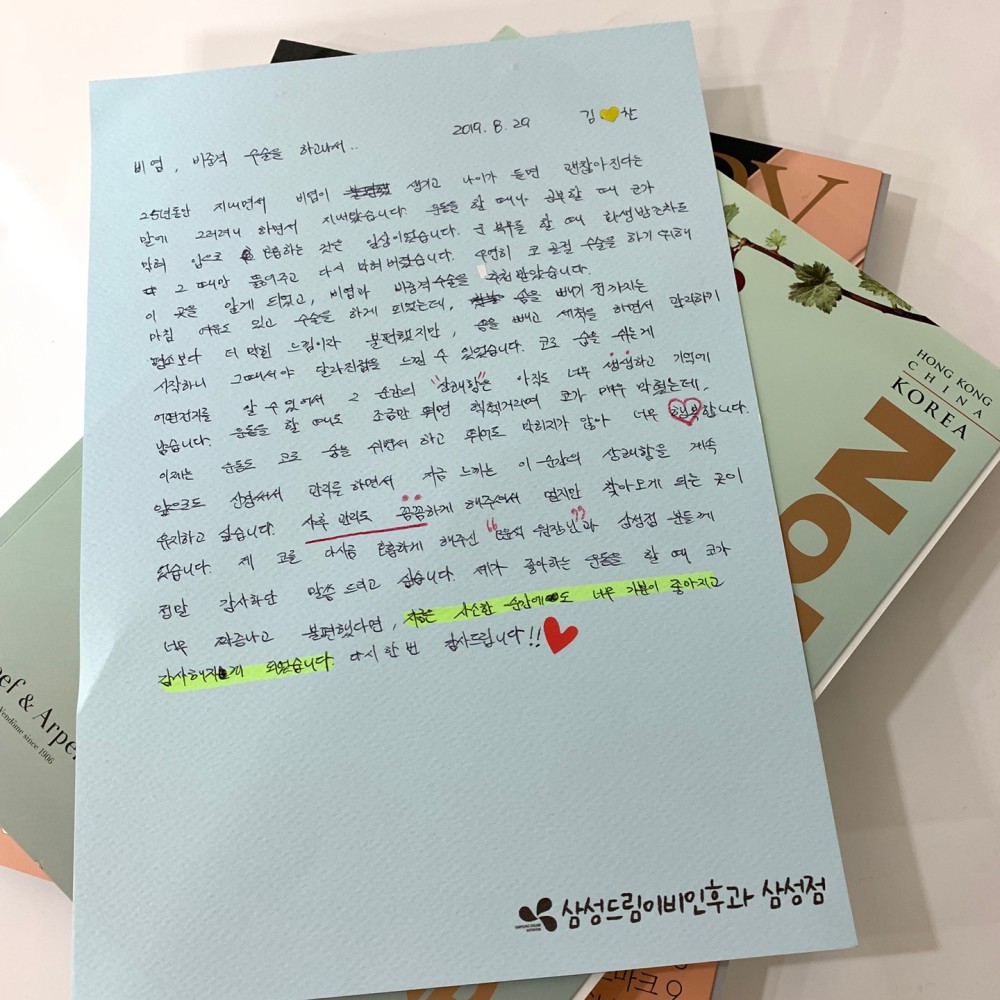 2019. 8. 29 김 찬
비염, 비중격 수술을 하고나서..
25년동안 지내면서 비염이 생기고 나이가 들면 괜찮아진다는
말에 그러려니 하면서 지내왔습니다. 운동을 할 때나 공부할 때 코가
막혀 입으로 호흡하는 것은 일상이었습니다. 코 푸는
그 때만 뚫어주고 다시 막혀 버렸습니다. 우연히 코 골절 수술을 하기 위해
이 곳을 알게 되었고, 비염과 비중격수술을 추천 받았습니다.
마침 여유도 있고 수술을 하게 되었는데, 솜을 빼기 전까지는
평소보다 더 막힌 느낌이라 불편했지만, 솜을 빼고 세척을 하면서 관리하기
시작하니 그때서야 달라진점을 느낄 수 있었습니다. 코로 숨을 쉬는게
어떤건지를 알 수 있어서 그 순간의 "상쾌함"은 아직도 너무 생생하고 기억에
남습니다. 운동을 할 때도 조금만 뛰면 헉헉거리며 코가 매우 막혔는데,
이제는 운동도 코로 숨을 쉬면서 하고 뛰어도 막히지가 않아 너무 행복합니다.
앞으로도 신경써서 관리를 하면서 지금 느끼는 이 순간의 상쾌함을 계속
유지하고 싶습니다. 사후 관리도 꼼꼼하게 해주셔서 멀지만 찾아오게 되는 곳이
있습니다. 제 코를 다시금 호흡하게 해주신 " 원장님"과 삼성점 분들께
정말 감사하단 말씀 드리고 싶습니다. 제가 좋아하는 운동을 할 때 코가
너무 짜증나고 불편했다면, 지금은 사소한 순간에도 너무 기분이 좋아지고
감사해지게 되었습니다. 다시 한 번 감사드립니다!!
삼성드림이비인후과 삼성점
HONG KONG
CHINA
KOREA
ef & Arpe
Vendôme since 1906